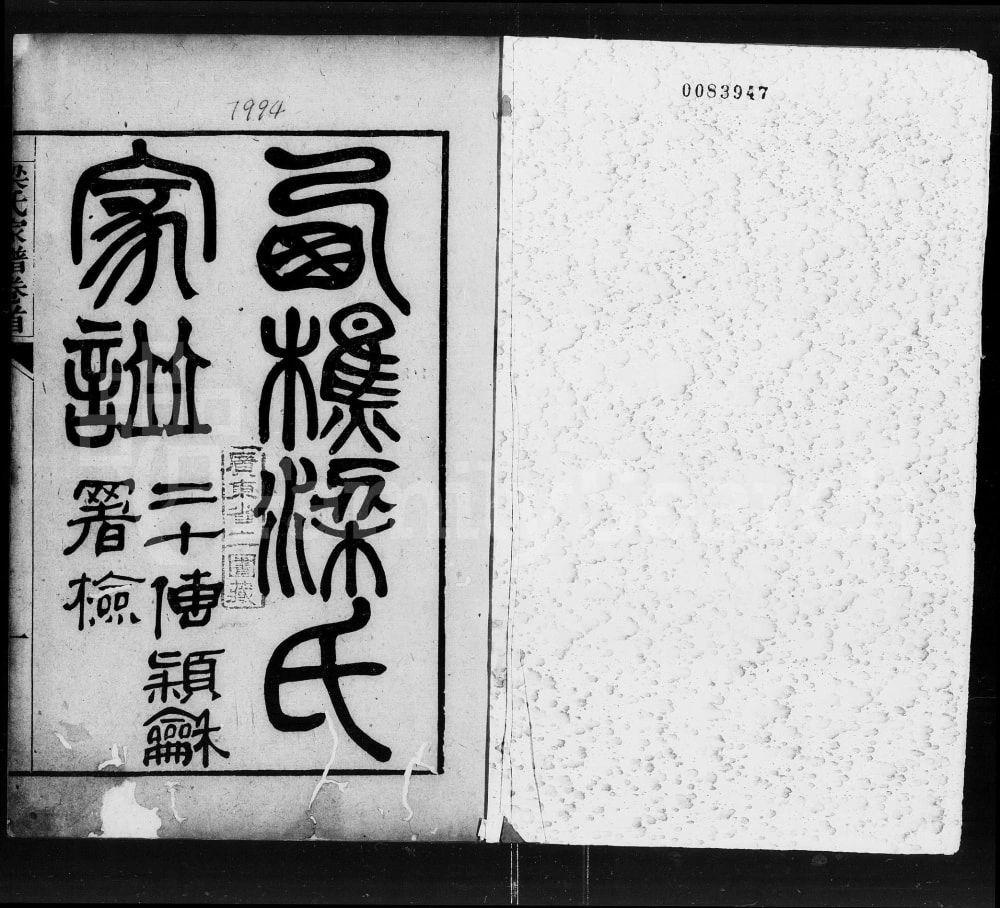 0083947
1994
西樵梁氏
家譜
二十傳穎龢
署檢
廣東省立圖書館藏
梁氏家譜卷首
一